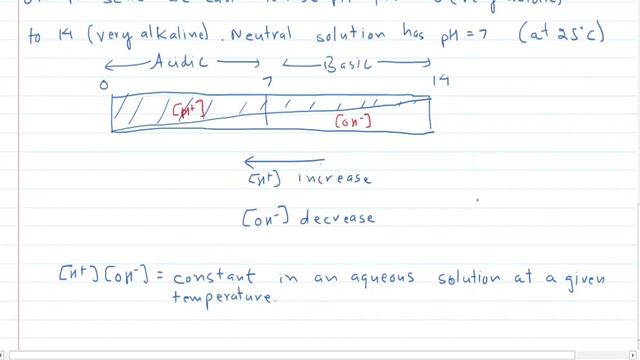 to 14 (very alkaline). Neutral solution has pH = 7 (at 25°C)
Acidic Basic
0 7 14
[H⁺]
[OH⁻]
[H⁺] increase
[OH⁻] decrease
[H⁺][OH⁻] = constant in an aqueous solution at a given
temperature.